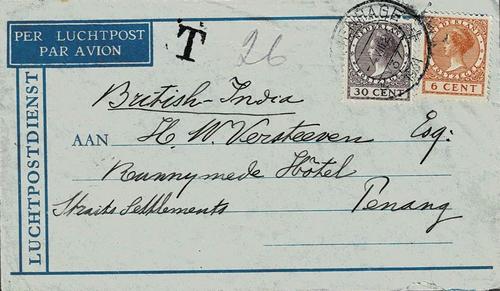 PER LUCHTPOST
PAR AVION
T
26
30 CENT
NEDERLAND
6 CENT
LUCHTPOSTDIENST
British-India
AAN H. W. Versteeven Esq:
Runnymede Hôtel
Straits Settlements Penang